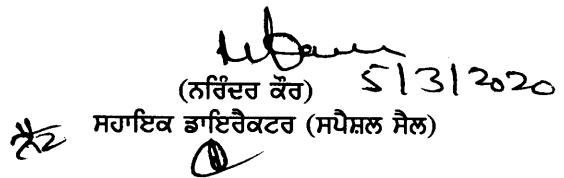 (ਨਰਿੰਦਰ ਕੌਰ) 5/3/2020
ਸਹਾਇਕ ਡਾਇਰੈਕਟਰ (ਸਪੈਸ਼ਲ ਸੈਲ)